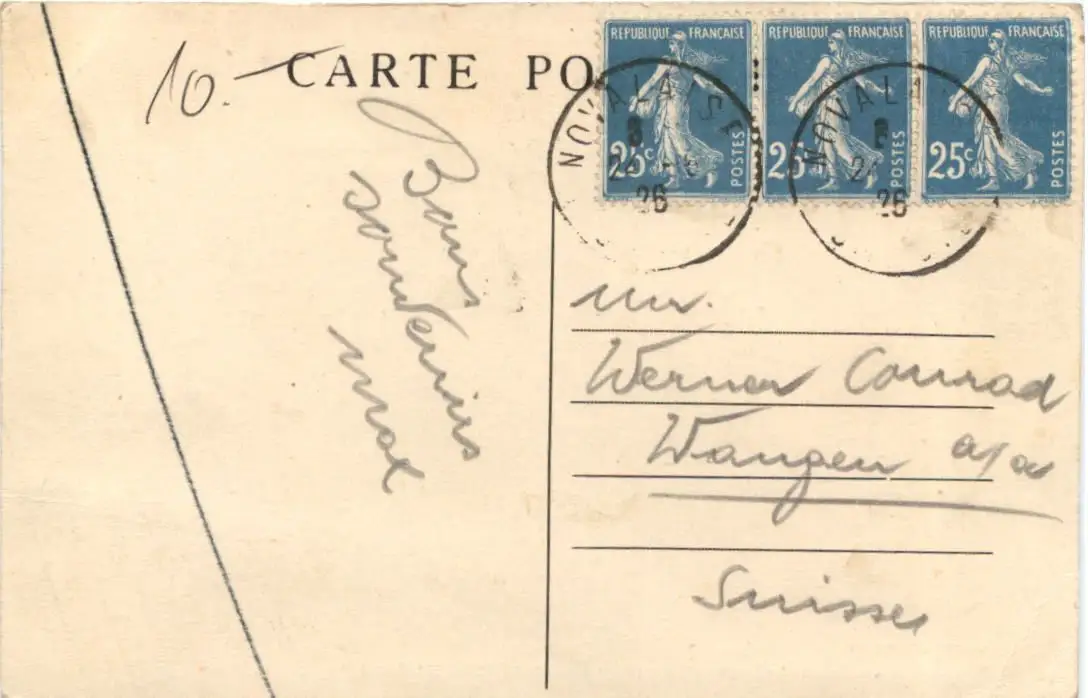 10.-
CARTE PO
REPUBLIQUE FRANÇAISE
25c
POSTES
REPUBLIQUE FRANÇAISE
25c
POSTES
REPUBLIQUE FRANÇAISE
25c
POSTES
NOVALAISE
26
NOVALAISE
26
Bons
souvenirs
Mr.
Werner Conrad
Wangen a/a
Suisse